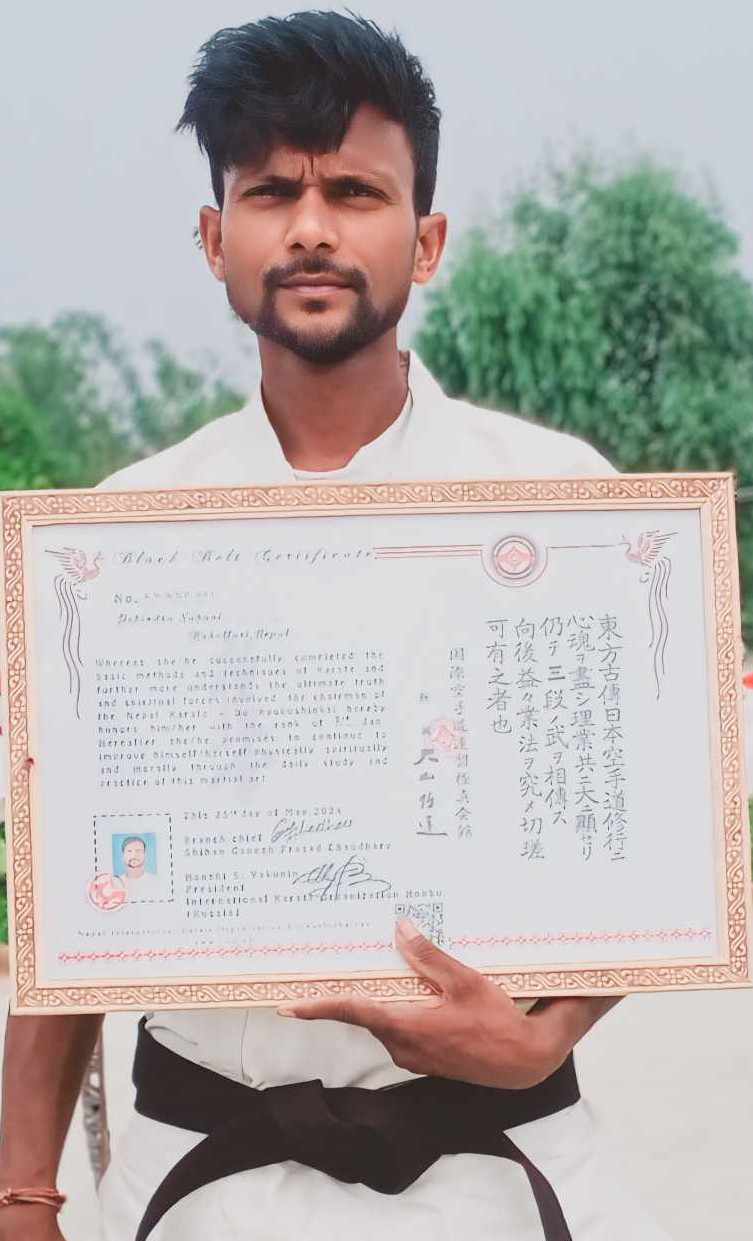 Black Belt Certificate
No.
Nepal
Whereas she/he successfully completed the
basic methods and techniques of karate and
further more understands the ultimate truth
and spiritual forces involved the chairman of
the Nepal Karate - Do Kyokushinkai hereby
honors him/her with the rank of Dan
Hereafter she/he promises to continue to
improve himself/herself physically spiritually
and morally through the daily study and
practice of this martial art
This 25th day of May 2024
Branch chief
Shihan Ganesh Prasad Chaudhary
Hanshi S. Yakunin
President
International Karate Organization Honbu
(Russia)
東方古傳日本空手道修行ニ
心魂ヲ盡シ理業共ニ大ニ顕セリ
仍テ三段ノ武ヲ相傳ス
向後益々業法ヲ究メ切瑳
可有之者也
国際空手道連盟極真会館
大山倍達